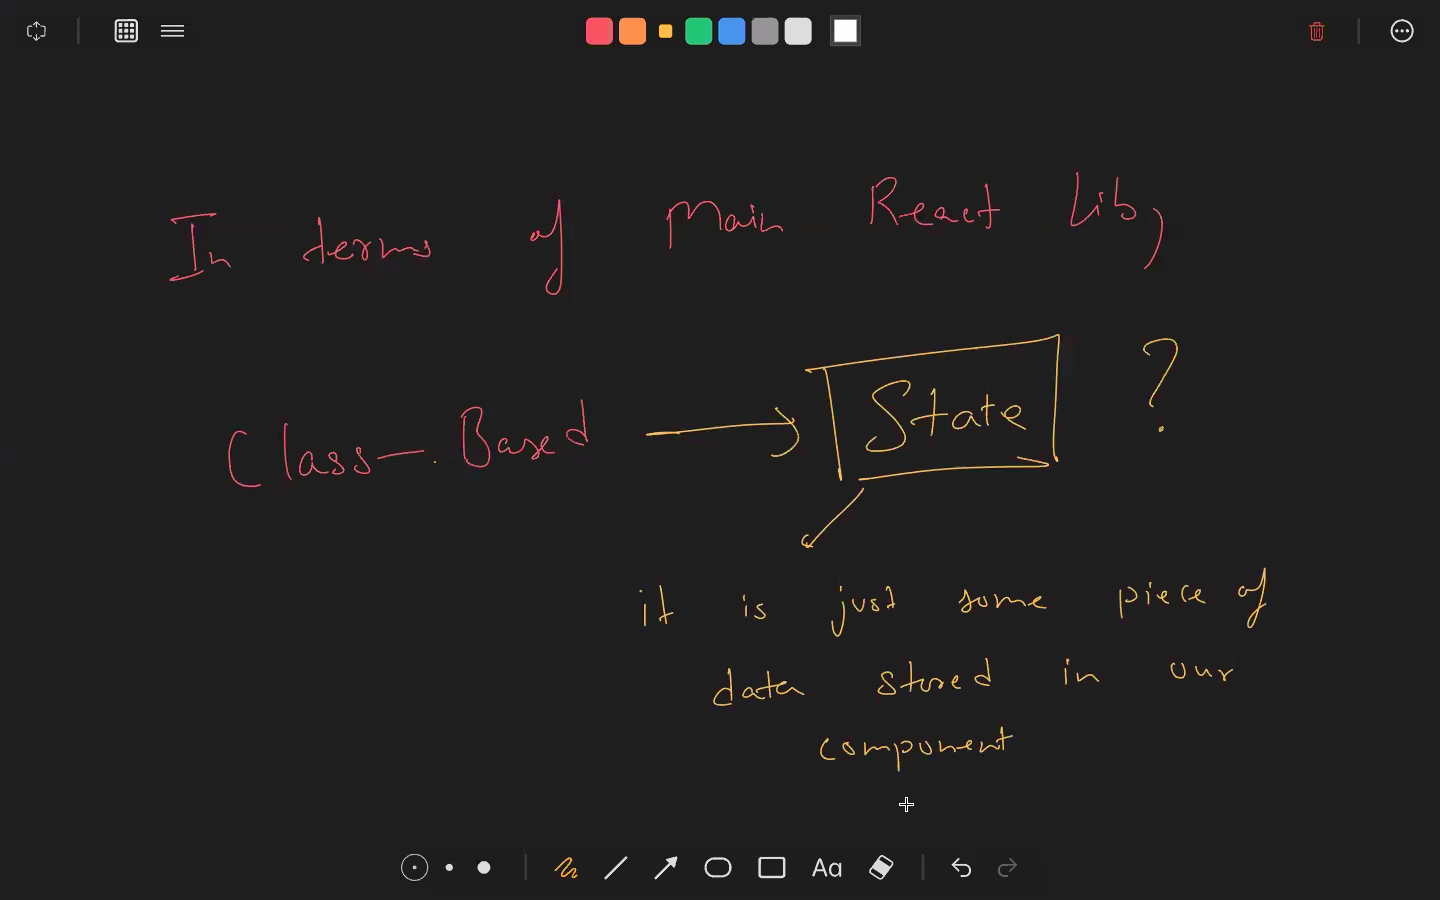 In terms of Main React Lib,
Class-Based → State ?
it is just some piece of
data stored in our
component
Aa